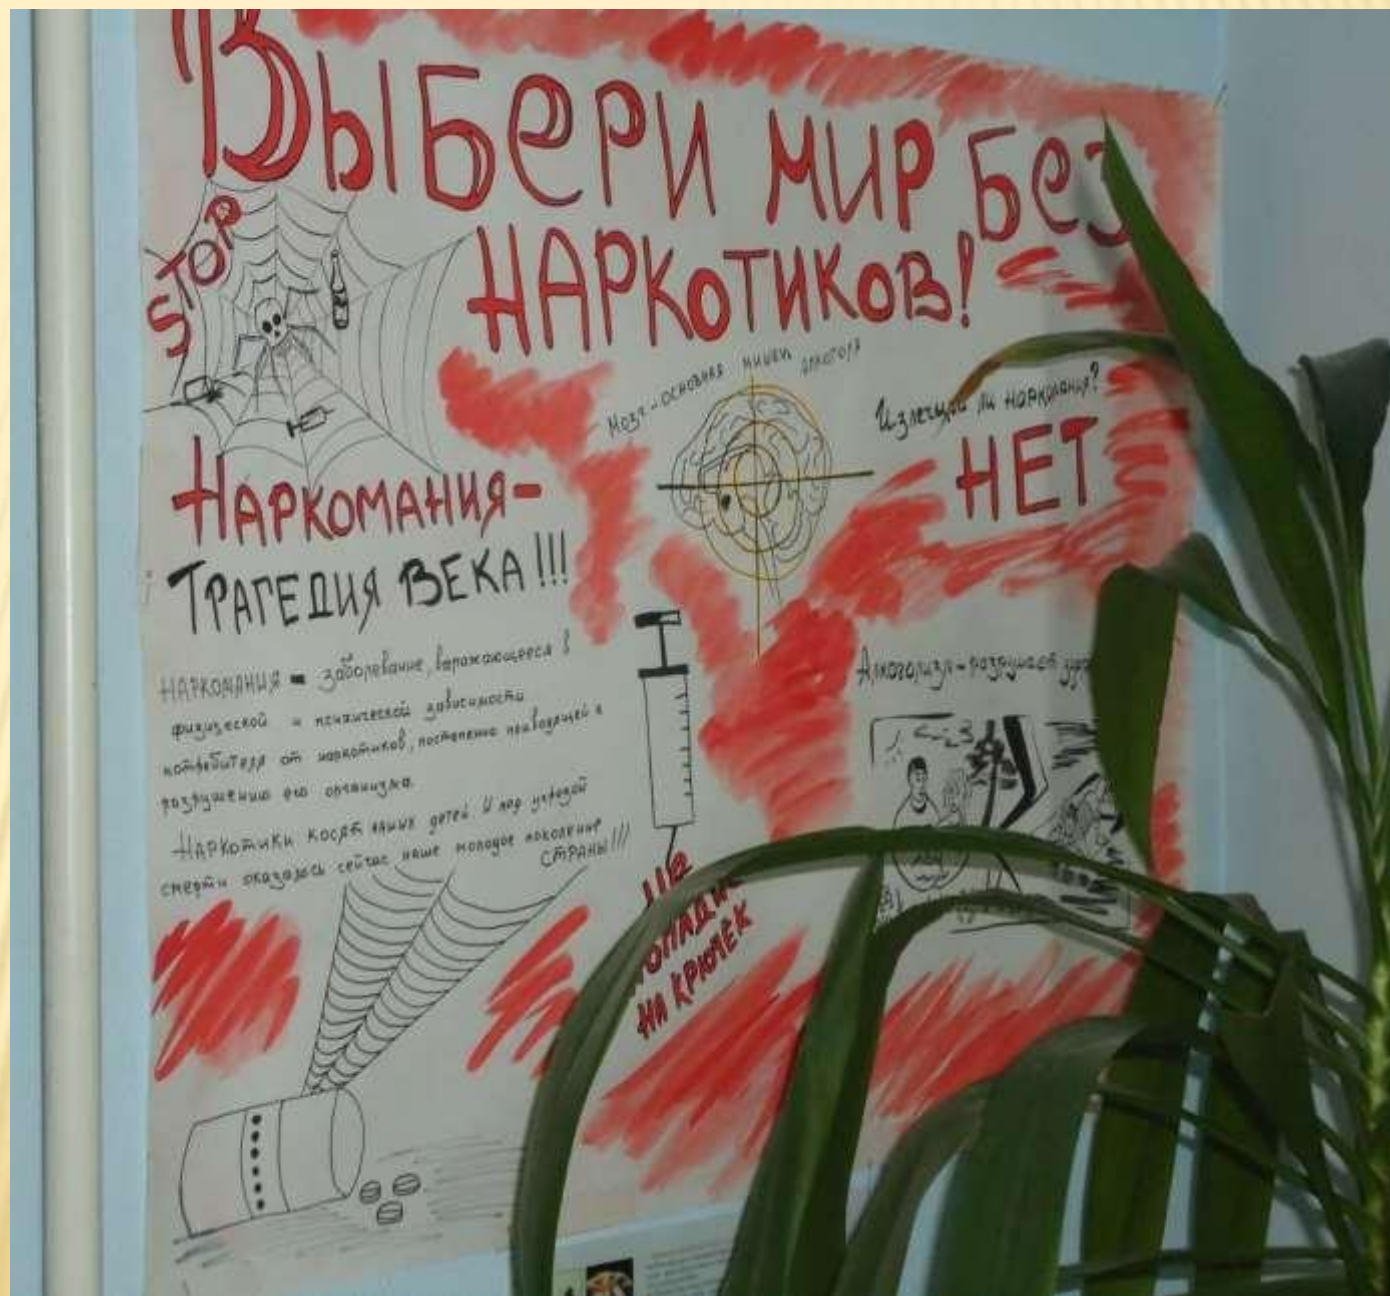 Выбери мир без
наркотиков!
STOP
Мозг - основная мишень
Излечима ли наркомания?
НЕТ
Наркомания-
Трагедия века!!!
Наркомания - заболевание, выражающееся в
физической и психической зависимости
потребителя от наркотиков, постепенно приводящей к
разрушению его организма.
Наркотики косят наших детей. И под угрозой
смерти оказалось сейчас наше молодое поколение
страны!!!
Алкоголизм - разрушает
Не
на крючёк